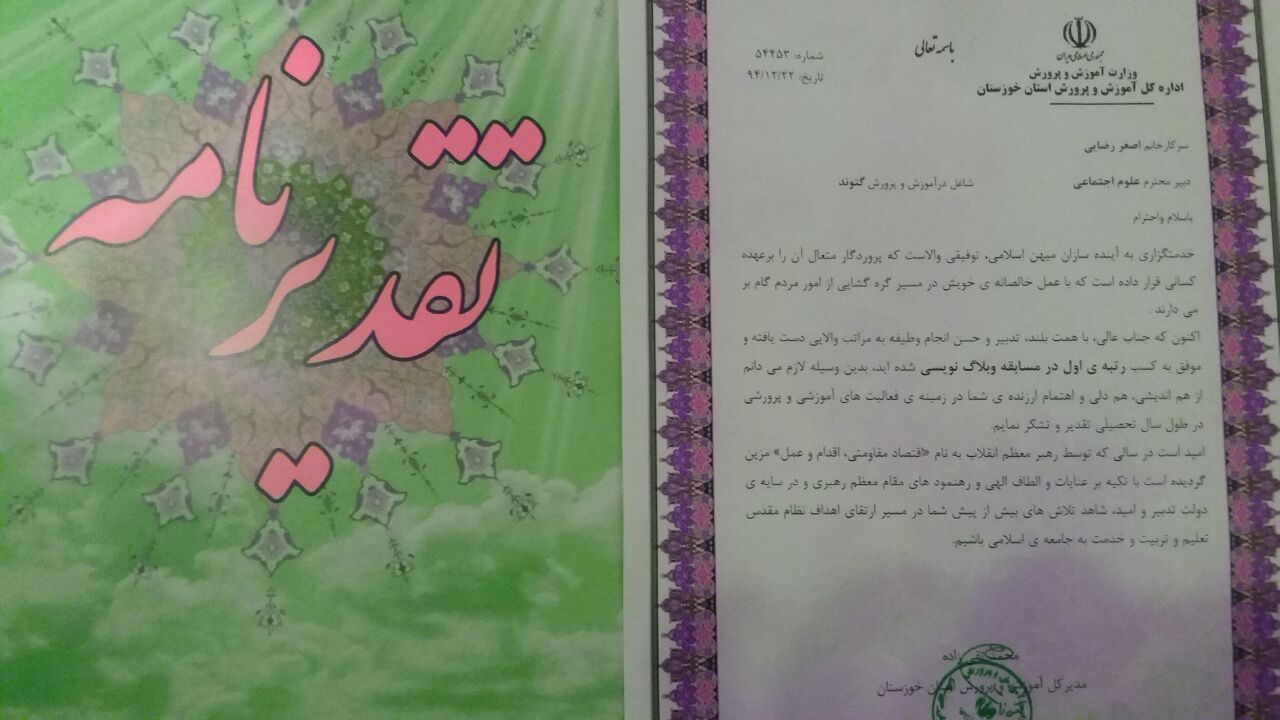 تقدیرنامه
جمهوری اسلامی ایران
وزارت آموزش و پرورش
اداره کل آموزش و پرورش استان خوزستان
باسمه تعالی
شماره: ۵۴۴۵۳
تاریخ: ۹۴/۱۲/۲۲
سرکارخانم اصغر رضایی
دبیر محترم علوم اجتماعی شاغل درآموزش و پرورش گتوند
باسلام واحترام
خدمتگزاری به آینده سازان میهن اسلامی، توفیقی والاست که پروردگار متعال آن را برعهده
کسانی قرار داده است که با عمل خالصانه ی خویش در مسیر گره گشایی از امور مردم گام بر
می دارند .
اکنون که جناب عالی، با همت بلند، تدبیر و حسن انجام وظیفه به مراتب والایی دست یافته و
موفق به کسب رتبه ی اول در مسابقه وبلاگ نویسی شده اید، بدین وسیله لازم می دانم
از هم اندیشی، هم دلی و اهتمام ارزنده ی شما در زمینه ی فعالیت های آموزشی و پرورشی
در طول سال تحصیلی تقدیر و تشکر نمایم.
امید است در سالی که توسط رهبر معظم انقلاب به نام «اقتصاد مقاومتی، اقدام و عمل» مزین
گردیده است با تکیه بر عنایات و الطاف الهی و رهنمود های مقام معظم رهبری و در سایه ی
دولت تدبیر و امید، شاهد تلاش های بیش از پیش شما در مسیر ارتقای اهداف نظام مقدس
تعلیم و تربیت و خدمت به جامعه ی اسلامی باشیم.
محمد زاده
مدیرکل آموزش و پرورش استان خوزستان